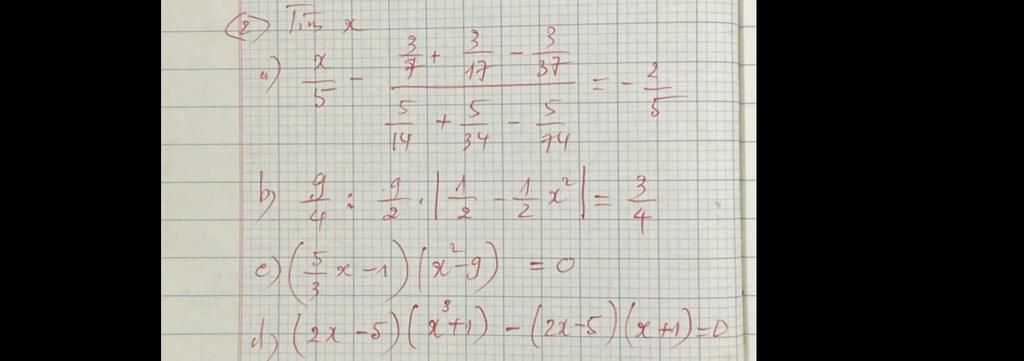 (2) Tìm x
a) x/5 - (3/7 + 3/17 - 3/37)/(5/14 + 5/34 - 5/74) = - 2/5
b) 9/4 : 9/2 . |1/2 - 1/2 x²| = 3/4
c) (5/3 x - 1)(x² - 9) = 0
d) (2x - 5)(x³ + 1) - (2x - 5)(x + 1) = 0